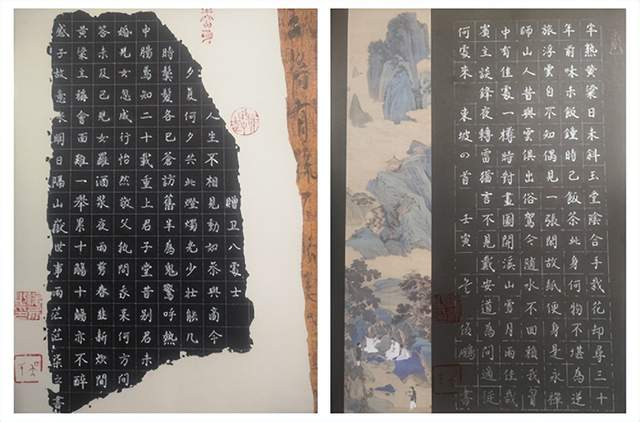 贈卫八處士
人生不相見動如參與商今
夕復何夕共此燈燭光少壯能几
時鬢髮各已蒼訪舊半為鬼驚呼熱
中腸焉知二十載重上君子堂昔别君未
婚兒女忽成行怡然敬父執問我來何方問
答未及已兒女羅酒漿夜雨剪春韭新炊間
黄粱主稱會面難一舉累十觴十觴亦不醉
感子故意長明日隔山嶽世事兩茫茫書
半熟黄粱日未斜玉堂陰合手栽花却尋三十
年前味未飯鐘時已飯茶此身何物不堪為逆
旅浮雲自不知偶見一張閒故紙便身是永禪
師山人昔與雲俱出俗駕今隨水不回賴我胷
中有佳處一樽時對畫圖開溪山雪月兩佳哉
賓主談鋒夜轉雷猶言不見戴安道為問適從
何處來 東坡四首 壬寅 俊鵬書